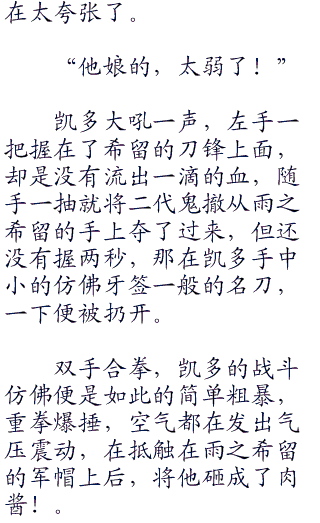 在太夸张了。
“他娘的，太弱了！”
凯多大吼一声，左手一
把握在了希留的刀锋上面，
却是没有流出一滴的血，随
手一抽就将二代鬼撤从雨之
希留的手上夺了过来，但还
没有握两秒，那在凯多手中
小的仿佛牙签一般的名刀，
一下便被扔开。
双手合拳，凯多的战斗
仿佛便是如此的简单粗暴，
重拳爆捶，空气都在发出气
压震动，在抵触在雨之希留
的军帽上后，将他砸成了肉
酱！。